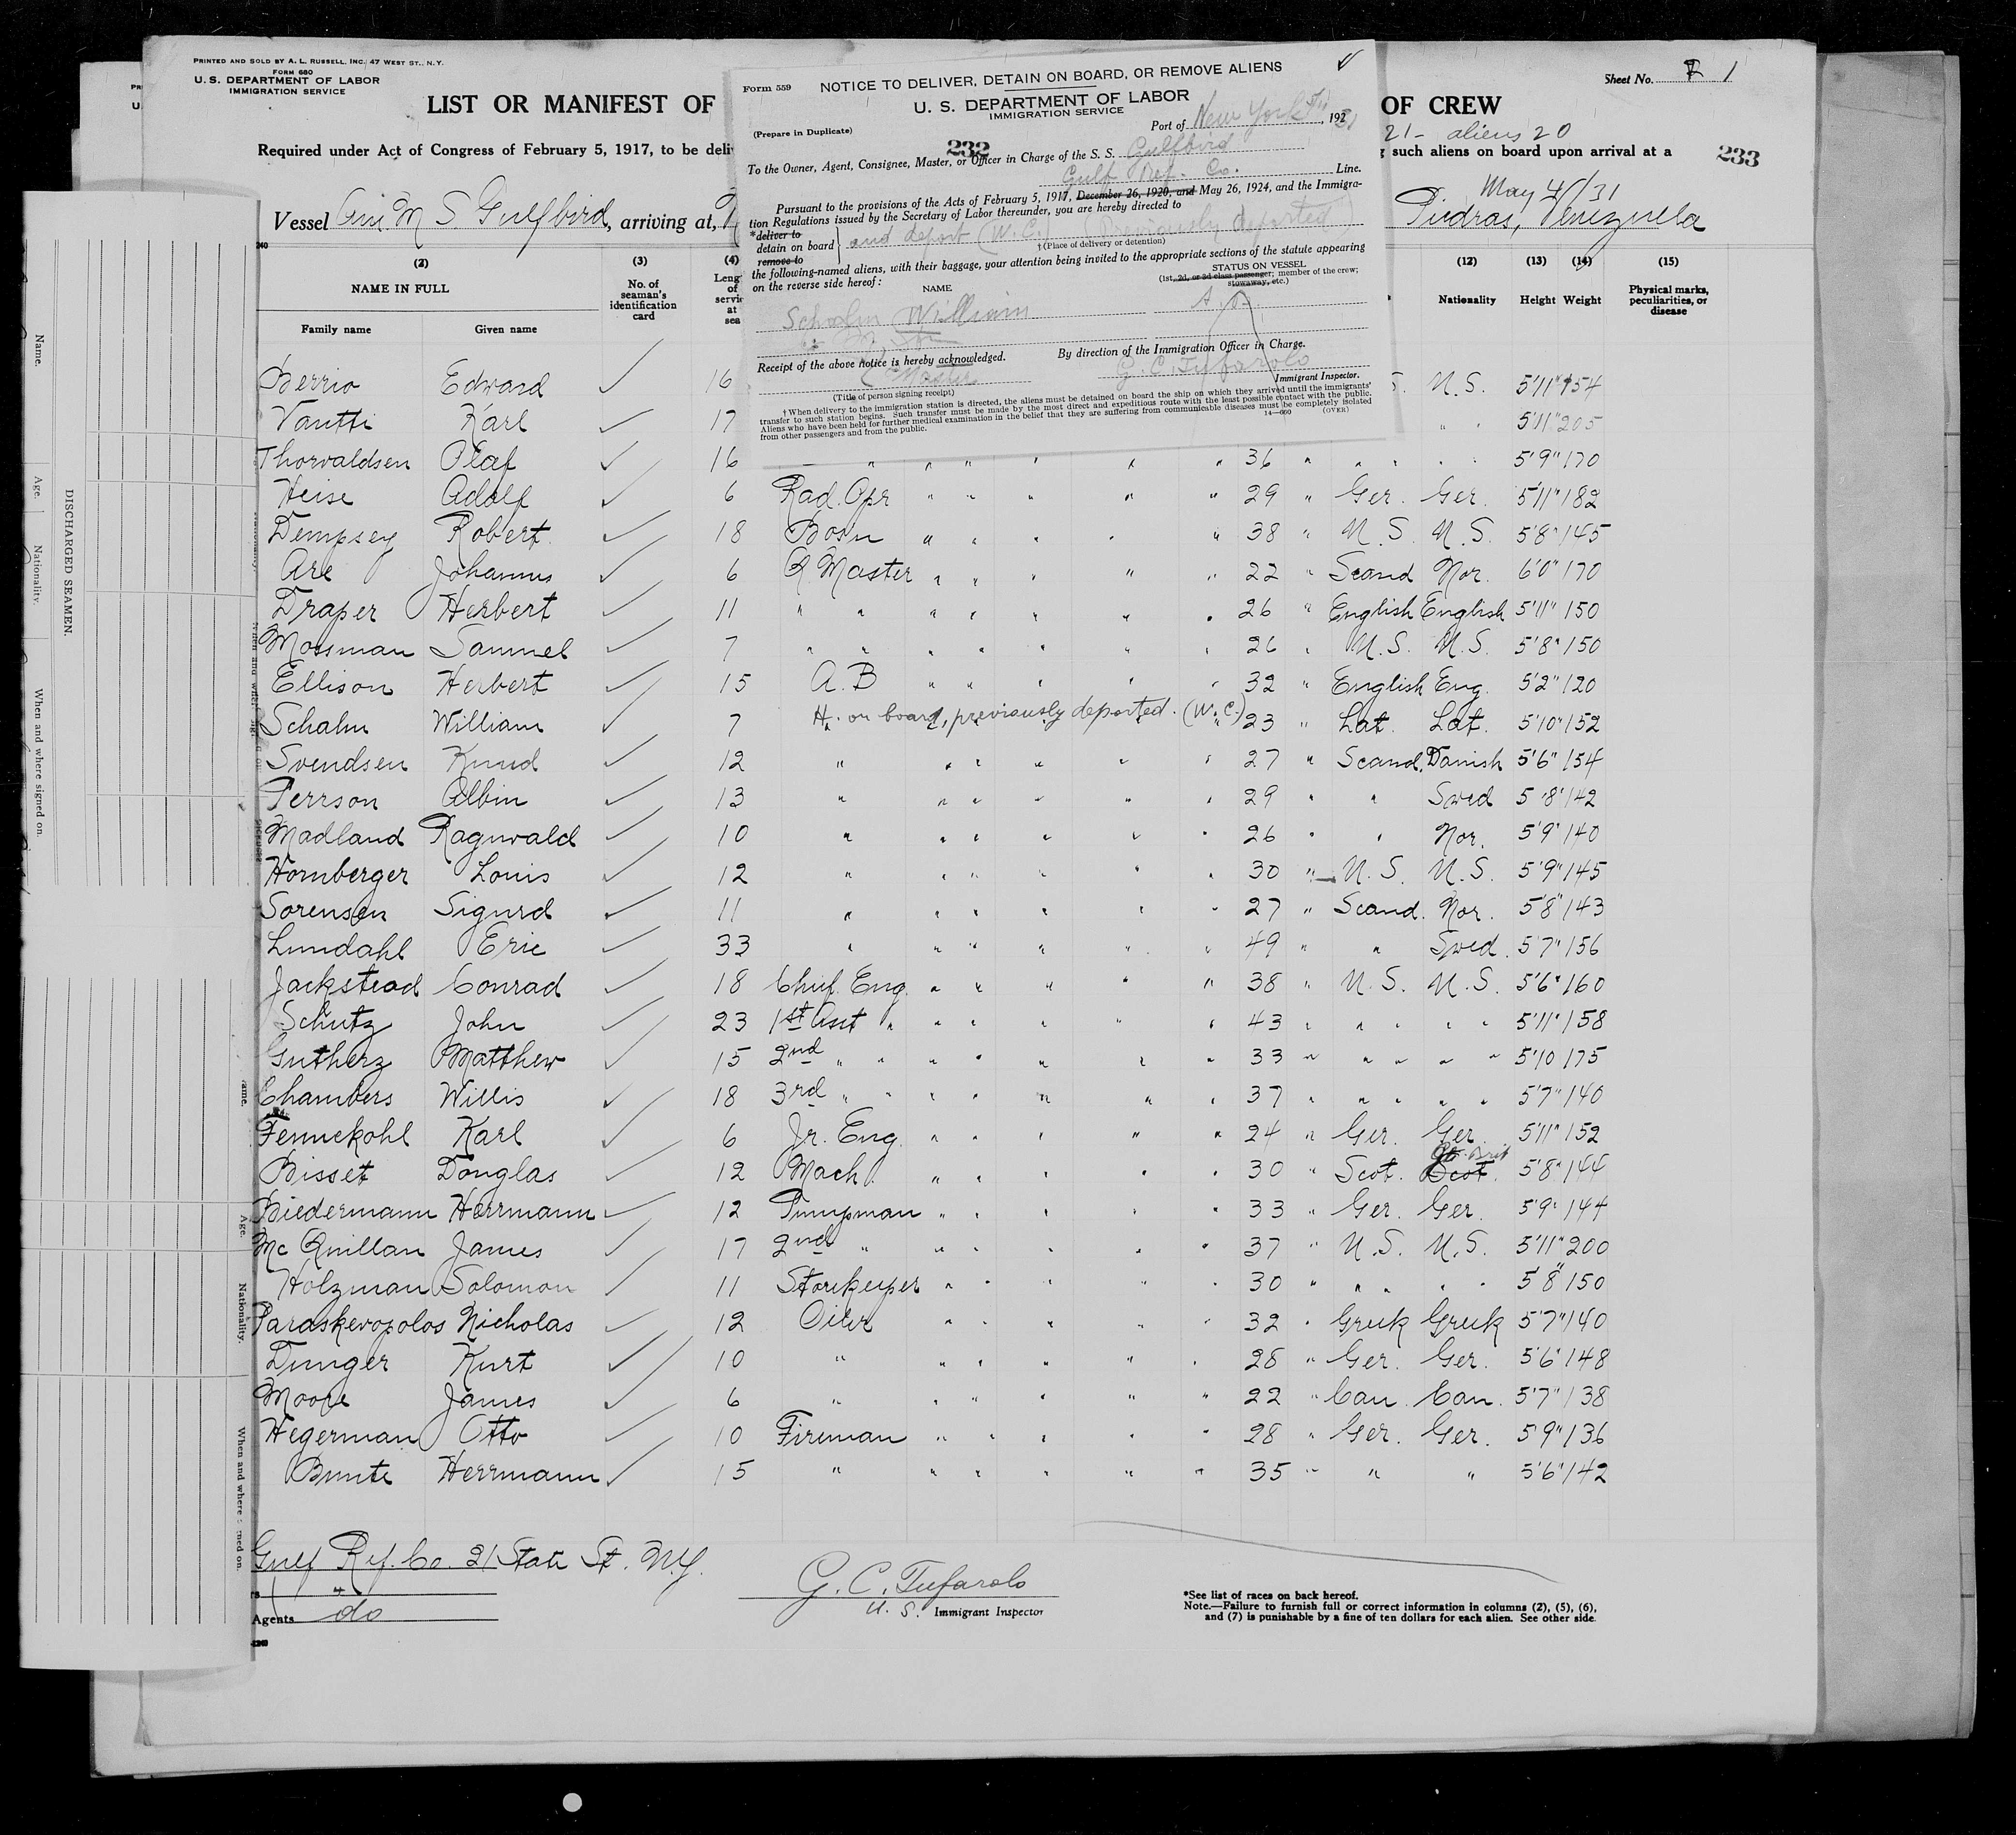 PRINTED AND SOLD BY A. L. RUSSELL, INC. 47 WEST ST., N.Y.
FORM 680
U. S. DEPARTMENT OF LABOR
IMMIGRATION SERVICE
Sheet No. 1
LIST OR MANIFEST OF
OF CREW
21 - aliens 20
Required under Act of Congress of February 5, 1917, to be deli
such aliens on board upon arrival at a
233
Vessel Am. M S Gulfbird, arriving at,
May 4/31
Piedras, Venezuela
Form 559
NOTICE TO DELIVER, DETAIN ON BOARD, OR REMOVE ALIENS
U. S. DEPARTMENT OF LABOR
IMMIGRATION SERVICE
(Prepare in Duplicate)
Port of New York , 192
232
To the Owner, Agent, Consignee, Master, or Officer in Charge of the S. S. Gulfbird
Gulf Ref. Co. Line.
Pursuant to the provisions of the Acts of February 5, 1917, December 26, 1920, and May 26, 1924, and the Immigra-
tion Regulations issued by the Secretary of Labor thereunder, you are hereby directed to
*deliver to
detain on board } and deport (W.C.) (Previously deported)
remove to
†(Place of delivery or detention)
the following-named aliens, with their baggage, your attention being invited to the appropriate sections of the statute appearing
on the reverse side hereof:
NAME
STATUS ON VESSEL
(1st, 2d, or 3d class passenger; member of the crew;
stowaway, etc.)
Schalm William
Receipt of the above notice is hereby acknowledged.
By direction of the Immigration Officer in Charge.
Master
G. C. Tufarolo
(Title of person signing receipt)
Immigrant Inspector.
†When delivery to the immigration station is directed, the aliens must be detained on board the ship on which they arrived until the immigrants'
transfer to such station begins. Such transfer must be made by the most direct and expeditious route with the least possible contact with the public.
Aliens who have been held for further medical examination in the belief that they are suffering from communicable diseases must be completely isolated
from other passengers and from the public.
14—660 (OVER)
(2) (3) (4) (12) (13) (14) (15)
NAME IN FULL
Family name Given name
No. of seaman's identification card
Nationality Height Weight
Physical marks, peculiarities, or disease
Berrio Edward 16 U.S. 5'11" 154
Vantti Karl 17 " " 5'11" 205
Thorvaldsen Olaf 16 " " " " " " 36 " " " " " 5'9" 170
Heise Adolf 6 Rad. Opr " " " " " 29 " Ger. Ger. 5'11" 182
Dempsey Robert 18 Bosn " " " " " 38 " U.S. U.S. 5'8" 145
Are Johannes 6 Q Master " " " " " 22 " Scand Nor. 6'0" 170
Draper Herbert 11 " " " " " " " 26 " English English 5'11" 150
Mossman Samuel 7 " " " " " " " 26 " U.S. U.S. 5'8" 150
Ellison Herbert 15 A.B " " " " " 32 " English Eng. 5'2" 120
Schalm William 7 H. on board, previously deported. (W.C.) 23 " Lat. Lat. 5'10" 152
Svendsen Knud 12 " " " " " " 27 " Scand. Danish 5'6" 154
Perrson Albin 13 " " " " " " 29 " " Swed 5'8" 142
Madland Ragnvald 10 " " " " " " 26 " " Nor. 5'9" 140
Hornberger Louis 12 " " " " " " 30 " U.S. U.S. 5'9" 145
Sorensen Sigurd 11 " " " " " " 27 " Scand. Nor. 5'8" 143
Lundahl Eric 33 " " " " " " 49 " " Swed. 5'7" 156
Jackstead Conrad 18 Chief Eng. " " " " " 38 " U.S. U.S. 5'6" 160
Schutz John 23 1st Asst " " " " " " 43 " " " " " 5'11" 158
Gutherz Matthew 15 2nd " " " " " " 33 " " " " " 5'10 175
Chambers Willis 18 3rd " " " " " " 37 " " " " " 5'7" 140
Fennekohl Karl 6 Jr. Eng. " " " " " 24 " Ger. Ger. 5'11" 152
Bisset Douglas 12 Mach. " " " " " 30 " Scot. Scot. Gt. Brit 5'8" 144
Biedermann Herrmann 12 Pumpman " " " " " 33 " Ger. Ger. 5'9" 144
Mc Quillan James 17 2nd " " " " " " 37 " U.S. U.S. 5'11" 200
Holzman Solomon 11 Storekeeper " " " " " 30 " " " " " 5'8" 150
Paraskevopolos Nicholas 12 Oiler " " " " " 32 " Greek Greek 5'7" 140
Dunger Kurt 10 " " " " " " 28 " Ger. Ger. 5'6" 148
Moore James 6 " " " " " " 22 " Can. Can. 5'7" 138
Hegerman Otto 10 Fireman " " " " " 28 " Ger. Ger. 5'9" 136
Bunte Herrmann 15 " " " " " " 35 " " " 5'6" 142
Gulf Ref. Co. 21 State St. N.Y.
Agents do
G. C. Tufarolo
U. S. Immigrant Inspector
*See list of races on back hereof.
Note.—Failure to furnish full or correct information in columns (2), (5), (6),
and (7) is punishable by a fine of ten dollars for each alien. See other side.
DISCHARGED SEAMEN.
Name. Age. Nationality. When and where signed on.
Age. Nationality.